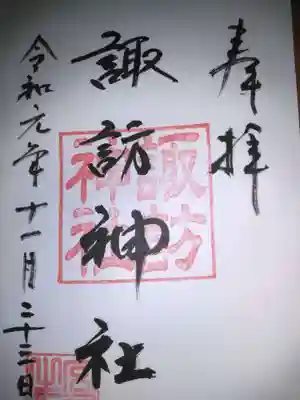 奉拝
諏訪神社
令和元年十一月二十三日
諏訪
神社